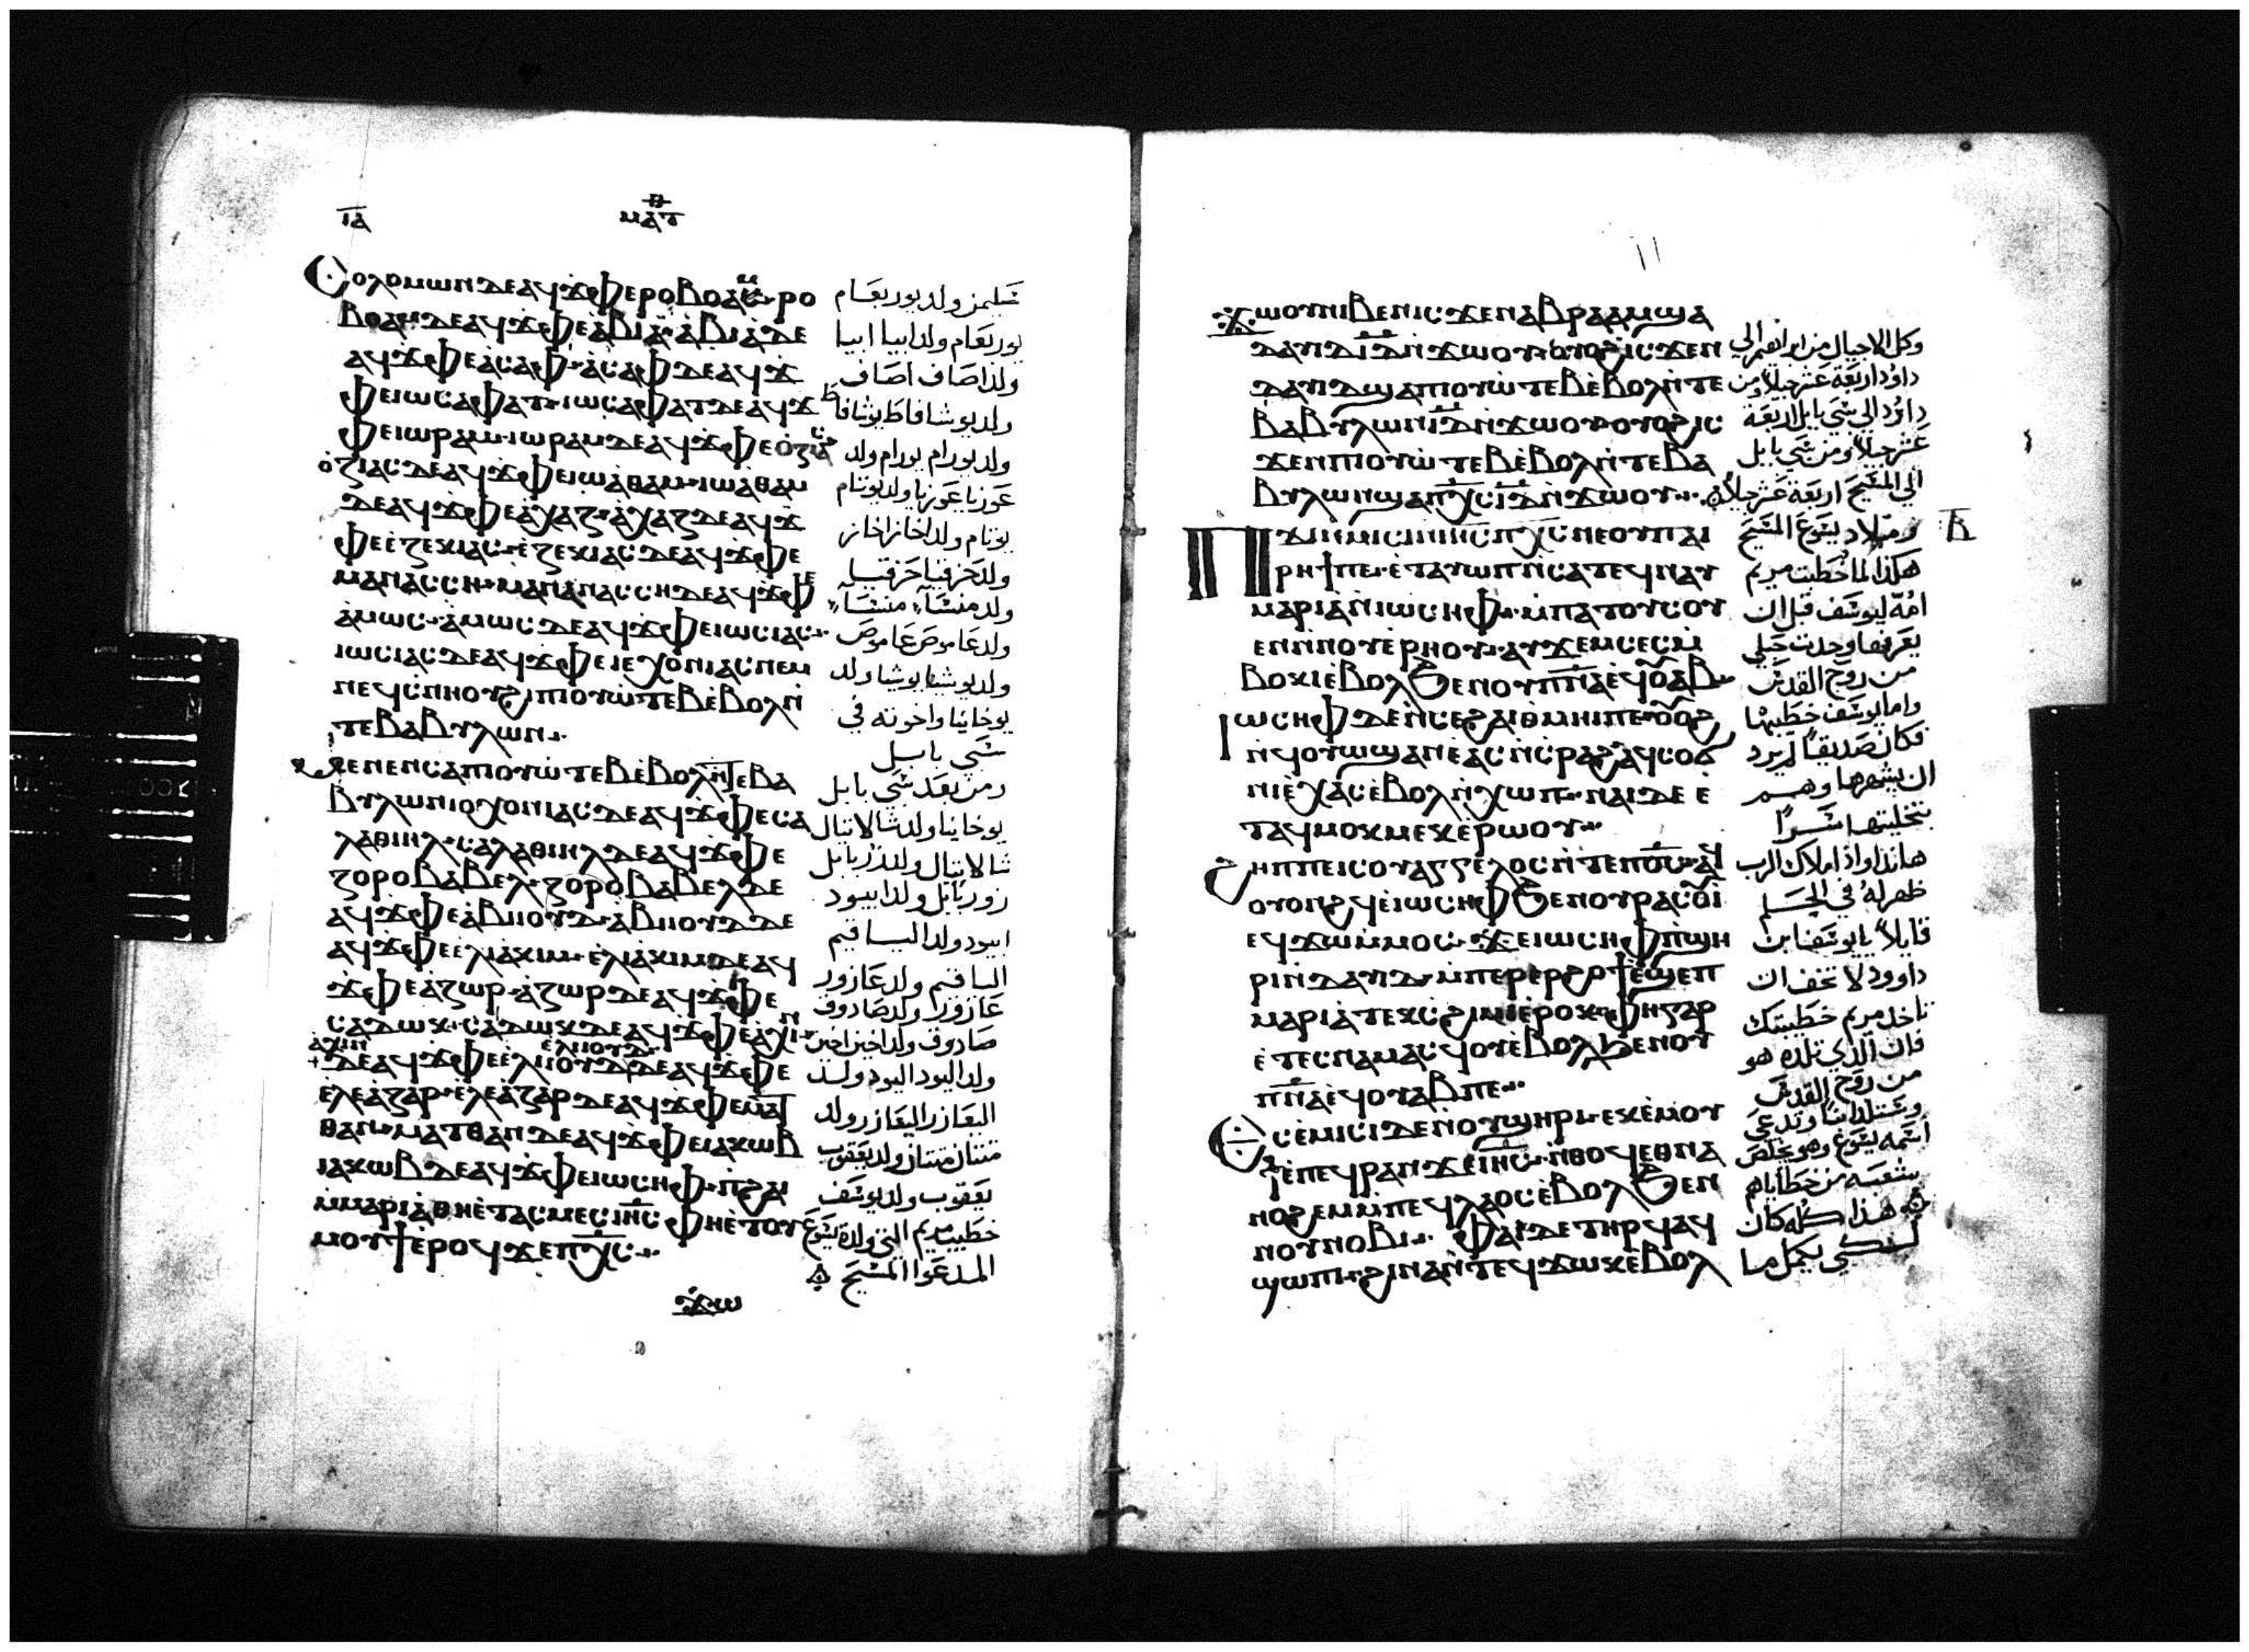 ⲓ̅ⲁ̅
ⲙⲁⲧ
Ⲥⲟⲗⲟⲙⲱⲛⲇⲉⲁϥϫⲫⲉⲣⲟⲃⲟⲁⲙ·ⲣⲟ
ⲃⲟⲁⲙⲇⲉⲁϥϫⲫⲉⲁ̀ⲃⲓⲁ·ⲁ̀ⲃⲓⲁⲇⲉ
ⲁϥϫⲫⲉⲁ̀ⲥⲁⲫ·ⲁ̀ⲥⲁⲫⲇⲉⲁϥϫ
ⲫⲉⲓⲱⲥⲁⲫⲁⲧ·ⲓⲱⲥⲁⲫⲁⲧⲇⲉⲁϥϫ
ⲫⲉⲓⲱⲣⲁⲙ·ⲓⲱⲣⲁⲙⲇⲉⲁϥϫⲫⲉⲟ̀ⲍⲓⲁⲥ
ⲟ̀ⲍⲓⲁⲥⲇⲉⲁϥϫⲫⲉⲓⲱⲁ̀ⲑⲁⲙ·ⲓⲱⲁ̀ⲑⲁⲙ
ⲇⲉⲁϥϫⲫⲉⲁ̀ⲭⲁⲍ·ⲁ̀ⲭⲁⲍⲇⲉⲁϥϫ
ⲫⲉⲉ̀ⲍⲉⲕⲓⲁⲥ·ⲉ̀ⲍⲉⲕⲓⲁⲥⲇⲉⲁϥϫⲫⲉ
ⲙⲁⲛⲁⲥⲥⲏ·ⲙⲁⲛⲁⲛⲁⲥⲥⲏⲇⲉⲁϥϫⲫⲉ
ⲁ̀ⲙⲱⲥ·ⲁ̀ⲙⲱⲥⲇⲉⲁϥϫⲫⲉⲓⲱⲥⲓⲁⲥ·
ⲓⲱⲥⲓⲁⲥⲇⲉⲁϥϫⲫⲉⲓⲉⲭⲟⲛⲓⲁⲥⲛⲉⲙ
ⲛⲉϥⲥⲛⲏⲟⲩϩⲓⲡⲓⲟⲩⲱ̀ⲧⲉⲃⲉ̀ⲃⲟⲗⲛ̀
ⲧⲉⲃⲁⲃⲩⲗⲱⲛ·
ⲙⲉⲛⲉⲛⲥⲁⲡⲓⲟⲩⲱ̀ⲧⲉⲃⲉ̀ⲃⲟⲗⲛ̀ⲧⲉⲃⲁ
ⲃⲩⲗⲱⲛⲓⲟⲭⲟⲛⲓⲁⲥⲇⲉⲁϥϫⲫⲉⲥⲁ
ⲗⲁⲑⲓⲏⲗ·ⲥⲁⲗⲁⲑⲓⲏⲗⲇⲉⲁϥϫⲫⲉ
ⲍⲟⲣⲟⲃⲁⲃⲉⲗ·ⲍⲟⲣⲟⲃⲁⲃⲉⲗⲇⲉ
ⲁϥϫⲫⲉⲁ̀ⲃⲓⲟⲩⲇ·ⲁ̀ⲃⲓⲟⲩⲇⲇⲉ
ⲁϥϫⲫⲉⲉ̀ⲗⲓⲁⲕⲓⲙ·ⲉ̀ⲗⲓⲁⲕⲓⲙⲇⲉⲁϥ
ϫⲫⲉⲁ̀ⲍⲱⲣ·ⲁ̀ⲍⲱⲣⲇⲉⲁϥϫⲫⲉ
ⲥⲁⲇⲱⲕ·ⲥⲁⲇⲱⲕⲇⲉⲁϥϫⲫⲉⲁ̀ⲭⲓⲛ·
ⲁⲭⲓⲛ ⲉⲗⲓⲟⲩⲇ
ⲇⲉⲁϥϫⲫⲉⲉ̀ⲗⲓⲟⲩⲇⲇⲉⲁϥϫⲫⲉ
ⲉ̀ⲗⲉⲁ̀ⲍⲁⲣ·ⲉ̀ⲗⲉⲁ̀ⲍⲁⲣⲇⲉⲁϥϫⲫⲉⲙⲁⲧ
ⲑⲁⲛ·ⲙⲁⲧⲑⲁⲛⲇⲉⲁϥϫⲫⲉⲓⲁⲕⲱⲃ
ⲓⲁⲕⲱⲃⲇⲉⲁϥϫⲫⲉⲓⲱⲥⲏⲫ·ⲡϩⲁⲓ
ⲙ̀ⲙⲁⲣⲓⲁ̀ⲑⲏⲉ̀ⲧⲁⲥⲙⲉⲥⲓⲏ̅ⲥ̅ⲫⲏⲉ̀ⲧⲟⲩ
ⲙⲟⲩϯⲉⲣⲟϥϫⲉⲡⲭ̅ⲥ̅·
ϫⲱ
شليمن ولد يوربعام
يوربعام ولد ابيا ابيا
ولد اصاف اصاف
ولد يوشافاط يوشافاط
ولد يورام يورام ولد
عوزيا عوزيا ولد يوتام
يوتام ولد اخاز اخاز
ولد حزقيا حزقيا
ولد منشا منشا
ولد عاموص عاموص
ولد يوشيا يوشيا ولد
يوخانيا واخوته في
سبي بابل
ومن بعد سبي بابل
يوخانيا ولد شالاتيال
شالاتيال ولد زربابل
زوربابل ولد ابيود
ابيود ولد الياقيم
الياقيم ولد عازور
عازور ولد صادوق
صادوق ولد اخين اخين
ولد اليود اليود ولد
اليعازر اليعازر ولد
متتان متتان ولد يعقوب
يعقوب ولد يوسف
خطيب مريم التي ولدت يسوع
المدعوا المسيح
١١
ϫⲱⲟⲩⲛⲓⲃⲉⲛⲓⲥϫⲉⲛⲁⲃⲣⲁⲁⲙϣⲁ
ⲇⲁⲩⲇⲓ̅ⲇ̅ⲛ̀ϫⲱⲟⲩ·ⲟⲩⲟϩⲓⲥϫⲉⲛ
ⲇⲁⲩⲇϣⲁⲡⲓⲟⲩⲱ̀ⲧⲉⲃⲉ̀ⲃⲟⲗⲛ̀ⲧⲉ
ⲃⲁⲃⲩⲗⲱⲛⲓ̅ⲇ̅ⲛ̀ϫⲱⲟⲩⲟⲩⲟϩⲓⲥ
ϫⲉⲛⲡⲓⲟⲩⲱ̀ⲧⲉⲃⲉ̀ⲃⲟⲗⲛ̀ⲧⲉⲃⲁ
ⲃⲩⲗⲱⲛϣⲁⲡⲭ̅ⲥ̅ⲓ̅ⲇ̅ⲛ̀ϫⲱⲟⲩ·
ⲡϫⲓⲛⲙⲓⲥⲓⲛⲓⲏ̅ⲥ̅ⲡⲭ̅ⲥ̅ⲛⲉⲟⲩⲡⲁⲓ
ⲣⲏϯⲡⲉ·ⲉ̀ⲧⲁⲩⲱⲡⲛ̀ⲥⲁⲧⲉϥⲙⲁⲩ
ⲙⲁⲣⲓⲁⲛ̀ⲓⲱⲥⲏⲫ·ⲙ̀ⲡⲁⲧⲟⲩⲥⲟⲩ
ⲉⲛⲛⲟⲩⲉ̀ⲣⲏⲟⲩ·ⲁⲩϫⲉⲙⲥⲉⲥⲙ̀
ⲃⲟⲕⲓⲉ̀ⲃⲟⲗϧⲉⲛⲟⲩⲡ̅ⲛ̅ⲁ̅ⲉϥⲟ̅ⲁ̅ⲃ̅·
ⲓⲱⲥⲏⲫⲇⲉⲛ̀ⲉⲥϩⲁⲓⲑⲙⲏⲓⲡⲉ·ⲟⲟϩ
ⲛ̀ϥⲟⲩⲱϣⲁⲛⲉ̀ⲁⲥⲛ̀ⲥⲣⲁϩⲁϥⲥⲟϭ
ⲛⲓⲉ̀ⲭⲁⲥⲉ̀ⲃⲟⲗⲛ̀ⲭⲱⲡ·ⲛⲁⲓⲇⲉⲉ̀
ⲧⲁϥⲙⲟⲕⲙⲉⲕⲉ̀ⲣⲱⲟⲩ·
ϩⲏⲡⲡⲉⲓⲥⲟⲩⲁⲅⲅⲉⲗⲟⲥⲛ̀ⲧⲉⲡⲟ̅ⲥ̅ⲁϥ
ⲟⲩⲟⲛϩϥⲉ̀ⲓⲱⲥⲏⲫϧⲉⲛⲟⲩⲣⲁⲥⲟⲓ
ⲉϥϫⲱⲙ̀ⲙⲟⲥ·ϫⲉⲓⲱⲥⲏⲫⲡ̀ϣⲏ
ⲣⲓⲛ̀ⲇⲁⲩⲇ·ⲙ̀ⲡⲉⲣⲉⲣϩⲟϯⲉ̀ϣⲉⲡ
ⲙⲁⲣⲓⲁ̀ⲧⲉⲕⲥϩⲓⲙⲓⲉ̀ⲣⲟⲕ·ⲫⲏⲅⲁⲣ
ⲉ̀ⲧⲉⲥⲛⲁⲙⲁⲥϥⲟⲩⲉ̀ⲃⲟⲗϧⲉⲛⲟⲩ
ⲡ̅ⲛ̅ⲁ̅ⲉϥⲟⲩⲁⲃⲡⲉ·
ⲉⲥⲉ̀ⲙⲓⲥⲓⲇⲉⲛ̀ⲟⲩϣⲏⲣⲓ·ⲉⲕⲉ̀ⲙⲟⲩ
ϯⲉ̀ⲡⲉϥⲣⲁⲛϫⲉⲓⲏ̅ⲥ̅·ⲛ̀ⲑⲟϥⲉⲑⲛⲁ
ⲛⲟϩⲉⲙⲙ̀ⲡⲉϥⲗⲁⲟⲥⲉ̀ⲃⲟⲗϧⲉⲛ
ⲛⲟⲩⲛⲟⲃⲓ· ⲫⲁⲓⲇⲉⲧⲏⲣϥⲁϥ
ϣⲱⲡⲓ·ϩⲓⲛⲁⲛ̀ⲧⲉϥϫⲱⲕⲉ̀ⲃⲟⲗ
وكل الاجيال من ابراهيم الي
داود اربعة عشر جيلا ومن
داود الي سبي بابل اربعة
عشر جيلا ومن سبي بابل
الي المسيح اربعة عشر جيلا
وميلاد يسوع المسيح
ⲃ̅
هكذا لما خطبت مريم
امه ليوسف قبل ان
يعرفها وجدت حبلي
من روح القدس
واما يوسف خطيبها
فكان صديقا لم يرد
ان يشهرها وهم
بتخليتها سرا
هاندا واذا ملاك الرب
ظهر له في الحلم
قايلا يا يوسف ابن
داوود لا تخف ان
تاخد مريم خطيبتك
فان الذي تلده هو
من روح القدس
وستلد ابنا وتدعي
اسمه يسوع وهو يخلص
شعبه من خطاياهم
هذا كله كان
لكي يكمل ما